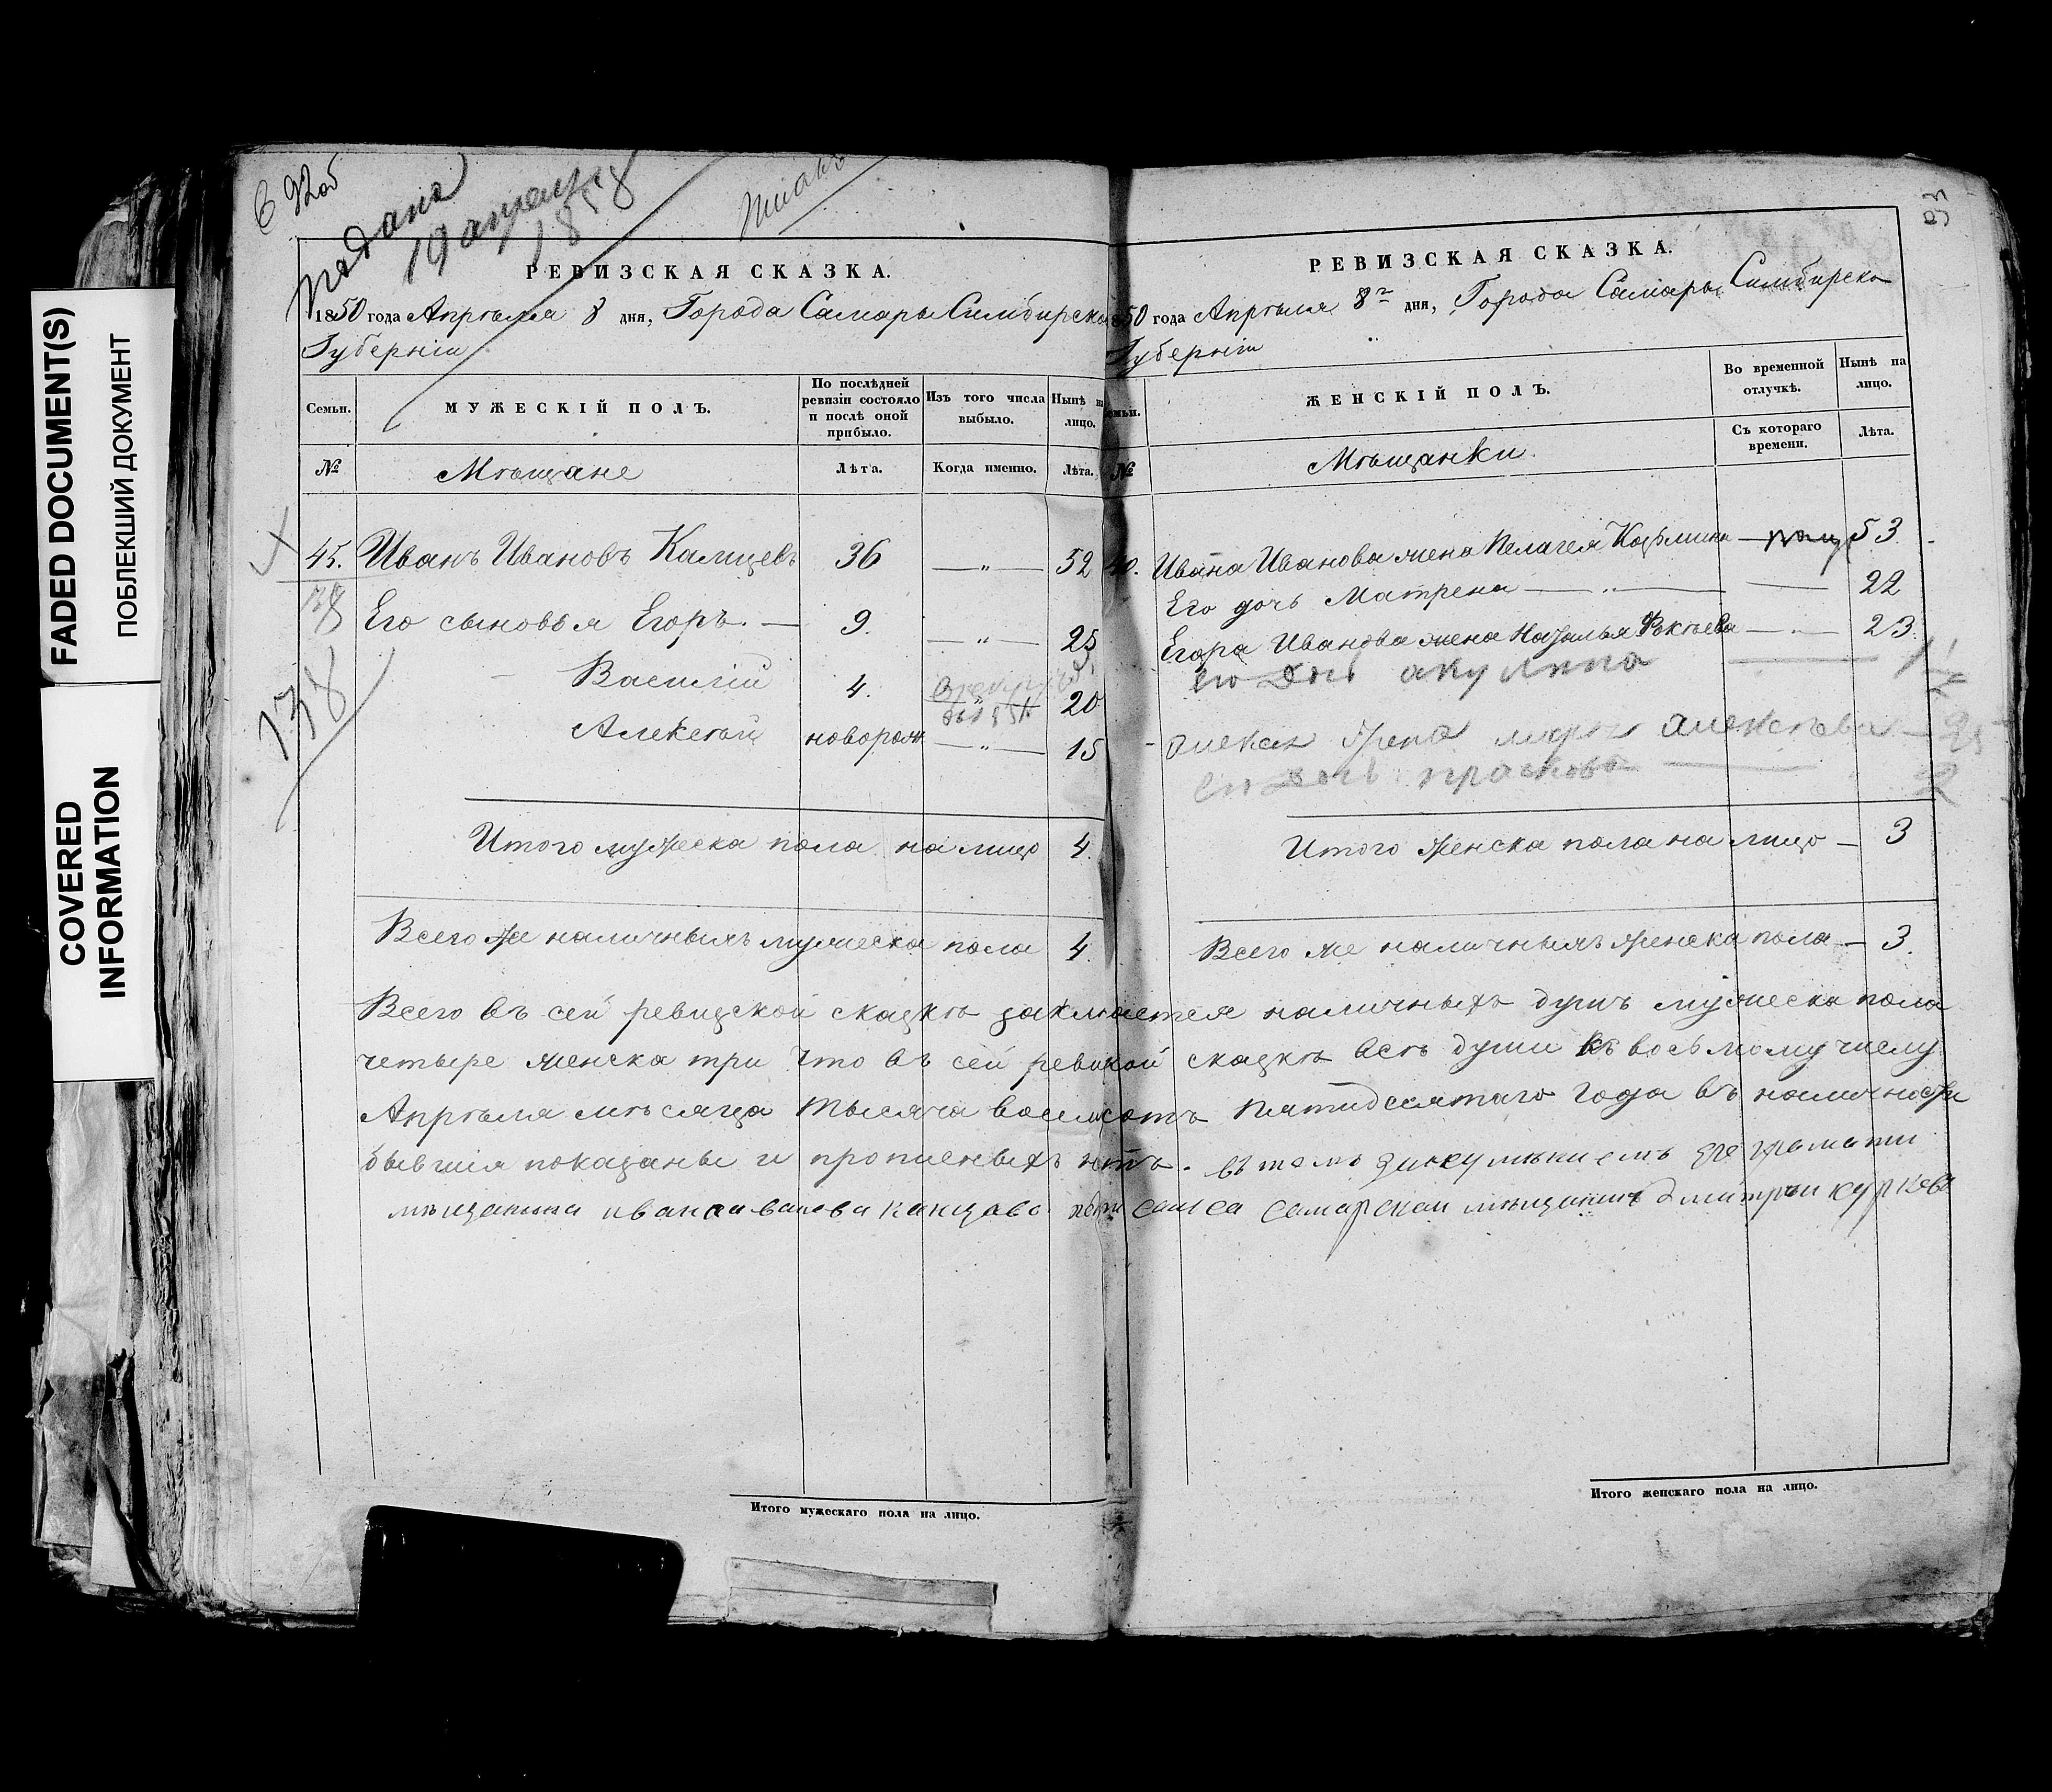 FADED DOCUMENT(S)
ПОБЛЕКШИЙ ДОКУМЕНТ
COVERED
INFORMATION
93
Подана
19 апреля
1858
РЕВИЗСКАЯ СКАЗКА.
1850 года Апрѣля 8 дня, Города Самары Симбирской
Губерніи
Семьи.
МУЖЕСКІЙ ПОЛЪ.
По послѣдней ревизіи состояло и послѣ оной прибыло.
Изъ того числа выбыло.
Нынѣ на лицо.
№
Мѣщане
Лѣта.
Когда именно.
Лѣта.
45. Иванъ Ивановъ 36 — „ — 52
138
Его сыновья Егоръ. — 9. — „ — 25
Василій 4. 20
Алексѣй новорож — „ — 15
138
Итого мужеска пола на лицо 4.
Всего же наличныхъ мужеска пола 4.
РЕВИЗСКАЯ СКАЗКА.
1850 года Апрѣля 8го дня, Города Самары Симбирской
Губерніи
Семьи.
ЖЕНСКІЙ ПОЛЪ.
Во временной отлучкѣ.
Нынѣ на лицо.
№
Мѣщанки
Съ котораго времени.
Лѣта.
Ивана Иванова жена Пелагея 53
Его дочь Матрена — „ — 22
Егора Иванова жена Наталья — „ — 23
его дочь акулина
жена Алексѣева
его дочь 2
Итого женска пола на лицо — 3
Всего же наличныхъ женска пола — 3.
Всего въ сей ревизской сказкѣ заключается наличныхъ душъ мужеска пола
четыре женска три что въ сей ревизкой сказкѣ всѣ души къ восьмому числу
Апрѣля мѣсяца тысяча восемсотъ пятидесятаго года въ наличности
бывшія показаны и прописныхъ нѣтъ. въ томъ
мещанина ивана иванова самарской мещанинъ дмитрей
Итого мужескаго пола на лицо.
Итого женскаго пола на лицо.